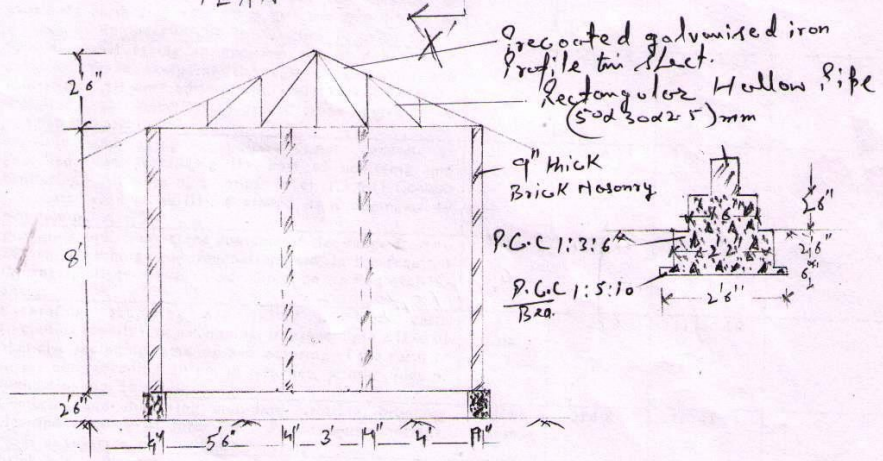 PLAN
X'
Precoated galvanised iron
Profile tin sheet.
Rectangular Hollow Pipe
(50x30x2.5)mm
2'6"
9" thick
Brick Masonry
8'
P.C.C 1:3:6
P.C.C 1:5:10
Bed.
2'6"
2'6"
6"
2'6"
2'6"
5'6"
3'
4'